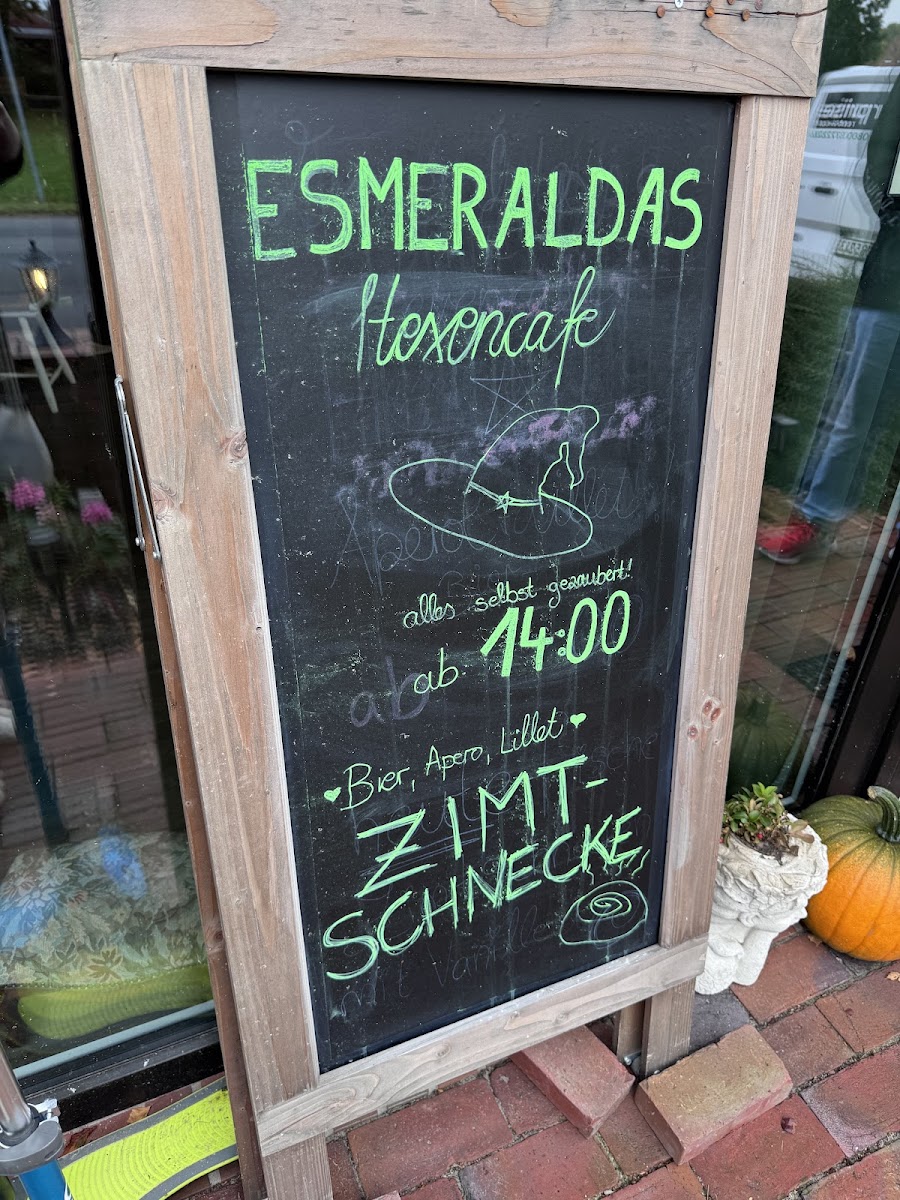 ESMERALDAS
Hexencafe
alles selbst gezaubert!
ab 14:00
Bier, Apero, Lillet
ZIMT-
SCHNECKE